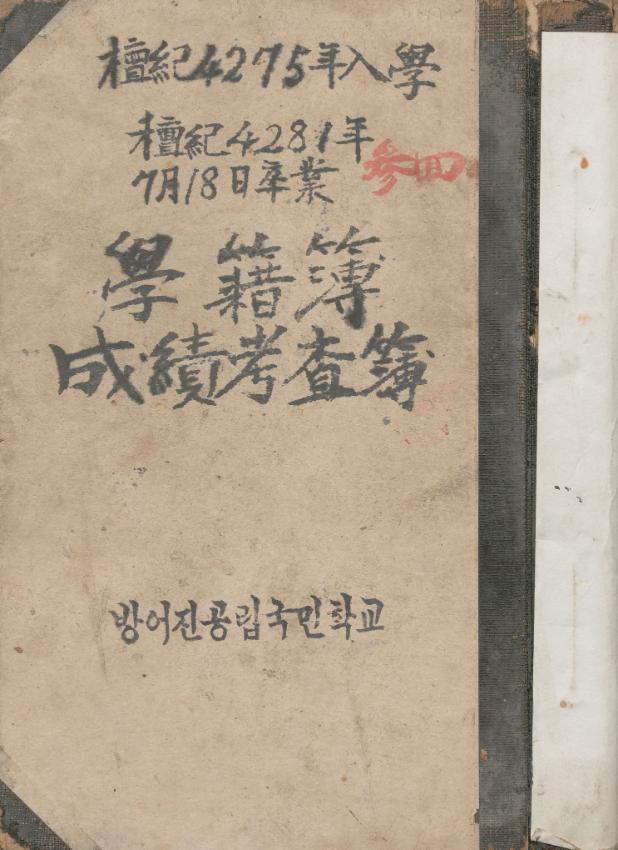 檀紀4275年入學
檀紀4281年
7月18日卒業
參回
學籍簿
成績考査簿
방어진공립국민학교